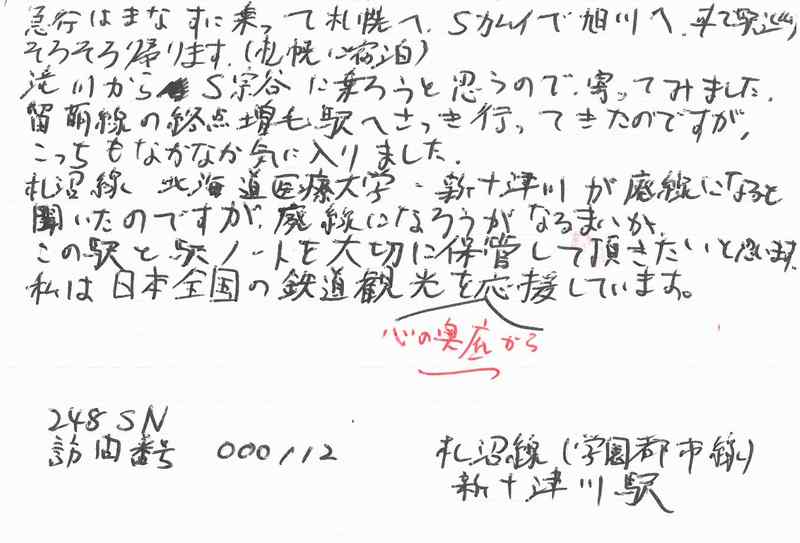 急行はまなすに乗って札幌へ、Sカムイで旭川へ、
そろそろ帰ります。(札幌に宿泊)
滝川からS宗谷に乗ろうと思うので、寄ってみました。
留萌線の終点増毛駅へさっき行ってきたのですが、
こっちもなかなか気に入りました。
札沼線 北海道医療大学-新十津川が廃線になると
聞いたのですが、廃線になろうがなるまいが、
この駅と駅ノートを大切に保管して頂きたいと思います。
私は日本全国の鉄道観光を応援しています。
心の奥底から
248SN
訪問番号 000112
札沼線(学園都市線)
新十津川駅